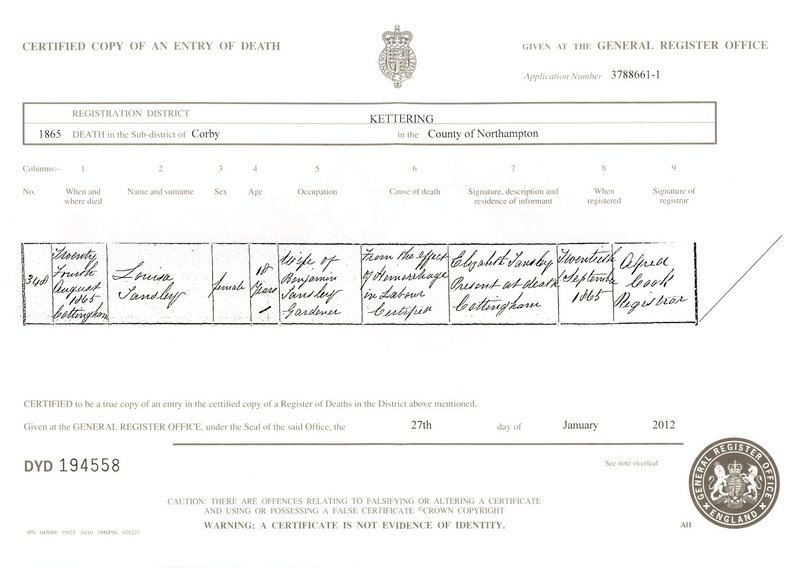 CERTIFIED COPY OF AN ENTRY OF DEATH
GIVEN AT THE GENERAL REGISTER OFFICE
Application Number 3788661-1
REGISTRATION DISTRICT KETTERING
1865 DEATH in the Sub-district of Corby in the County of Northampton
Columns:- 1 2 3 4 5 6 7 8 9
No. When and where died Name and surname Sex Age Occupation Cause of death Signature, description and residence of informant When registered Signature of registrar
348 Twenty Fourth August 1865 Cottingham Louisa Tansley female 18 Years Wife of Benjamin Tansley Gardener From the effect of Hemorrhage in Labour Certified Elizabeth Tansley Present at death Cottingham Twentieth September 1865 Alfred Cook Registrar
CERTIFIED to be a true copy of an entry in the certified copy of a Register of Deaths in the District above mentioned.
Given at the GENERAL REGISTER OFFICE, under the Seal of the said Office, the 27th day of January 2012
DYD 194558
See note overleaf
CAUTION: THERE ARE OFFENCES RELATING TO FALSIFYING OR ALTERING A CERTIFICATE
AND USING OR POSSESSING A FALSE CERTIFICATE ©CROWN COPYRIGHT
WARNING: A CERTIFICATE IS NOT EVIDENCE OF IDENTITY.
GENERAL REGISTER OFFICE
ENGLAND
AH